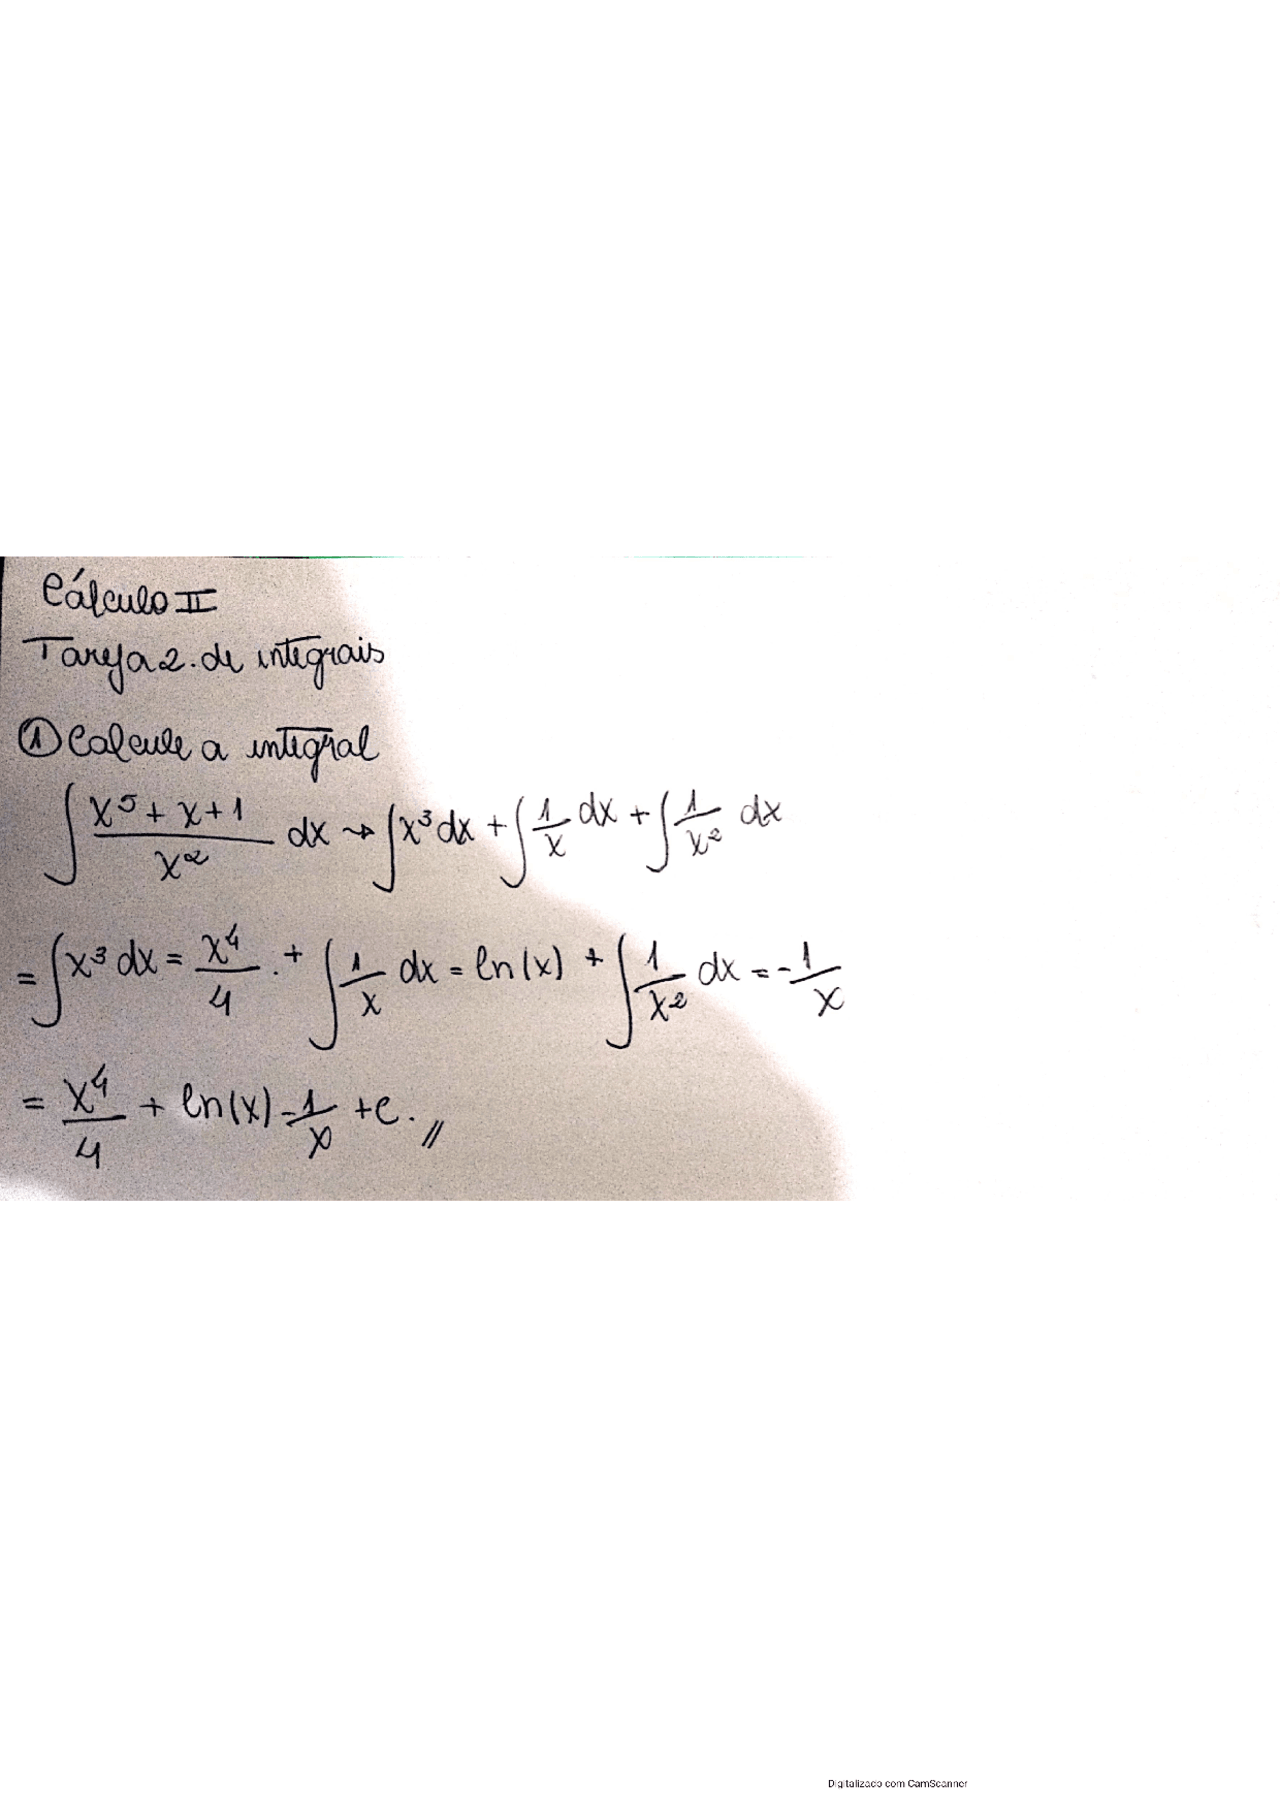 Cálculo II
Tarefa 2. de integrais
① Calcule a integral
∫ (x⁵ + x + 1)/x² dx → ∫x³ dx + ∫ 1/x dx + ∫ 1/x² dx
= ∫x³ dx = x⁴/4 . + ∫ 1/x dx = ln(x) + ∫ 1/x² dx = -1/x
= x⁴/4 + ln(x) - 1/x + c. //
Digitalizaco com CamScanner